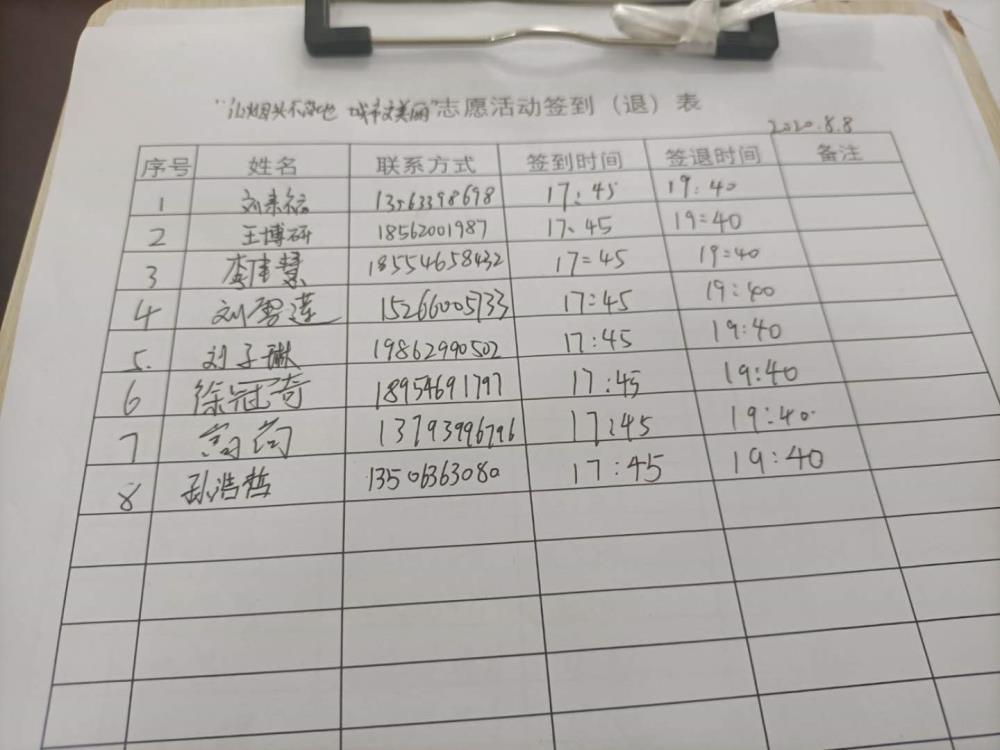 "让烟头不落地 城市更美丽"志愿活动签到（退）表
2020.8.8
序号 姓名 联系方式 签到时间 签退时间 备注
1 刘 13563398698 17:45 19:40
2 王博研 18562001987 17:45 19:40
3 李 慧 18554658432 17:45 19:40
4 刘雪莲 15266005733 17:45 19:40
5. 刘子琳 19862990502 17:45 19:40
6 徐冠奇 18954691797 17:45 19:40
7 13793996796 17:45 19:40
8 孙浩哲 13506363080 17:45 19:40